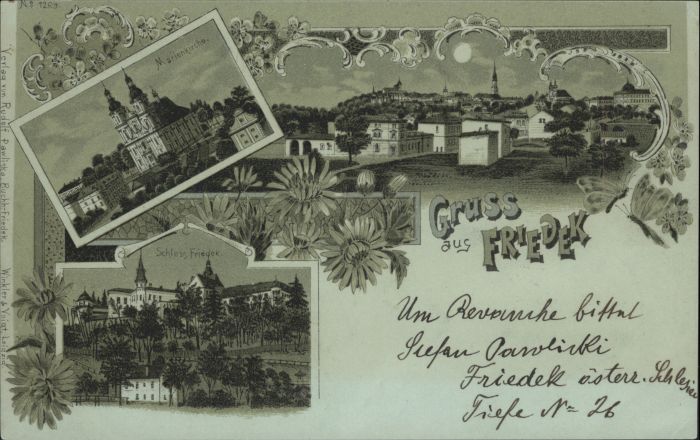 No. 1269.
Marienkirche.
Gruss
aus FRIEDEK
Schloss Friedek.
Verlag von Rudolf Pawlitka, Buchh. Friedek.
Winkler & Voigt, Leipzig.
Um Revanche bittet
Stefan Pawlicki
Friedek österr. Schlesien
Tiefe No 26